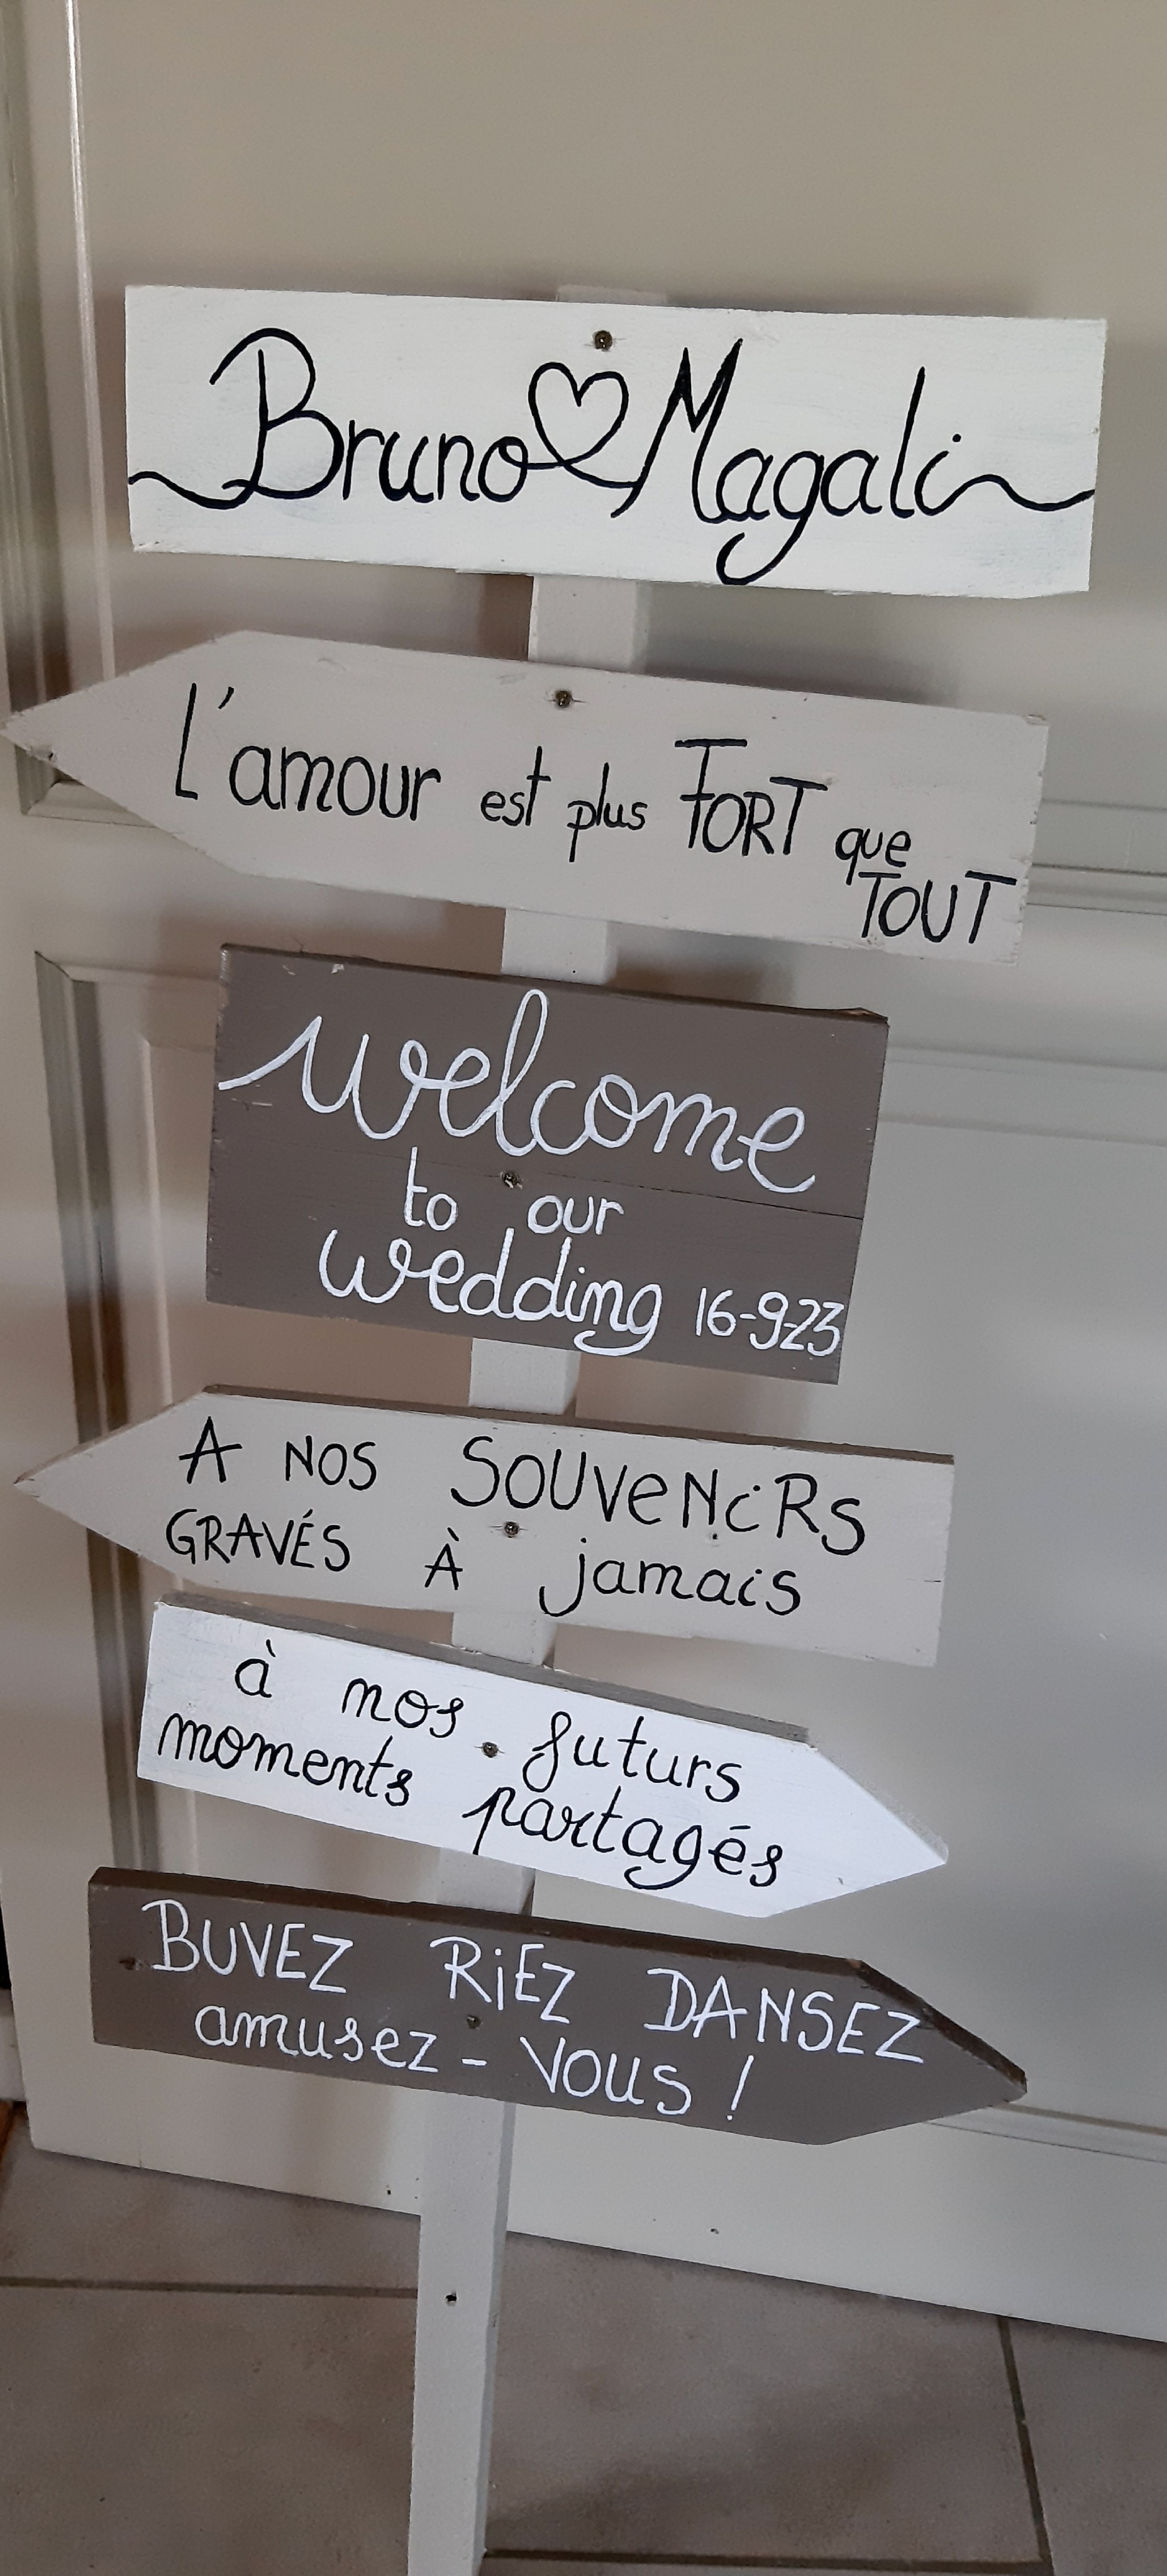 Bruno ♡ Magali
L'amour est plus FORT que
TOUT
welcome
to our
wedding 16-9-23
A NOS SOUVENiRS
GRAVÉS À jamais
à nos futurs
moments partagés
BUVEZ RiEZ DANSEZ
amusez-vous !